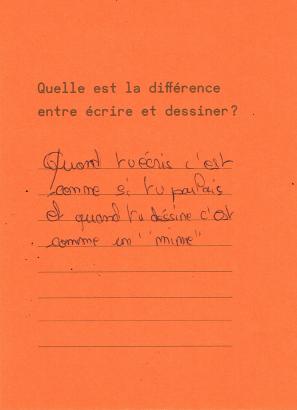 Quelle est la différence
entre écrire et dessiner?
Quand tu écris c'est
comme si tu parlais
Et quand tu déssine c'est
comme un "mime"